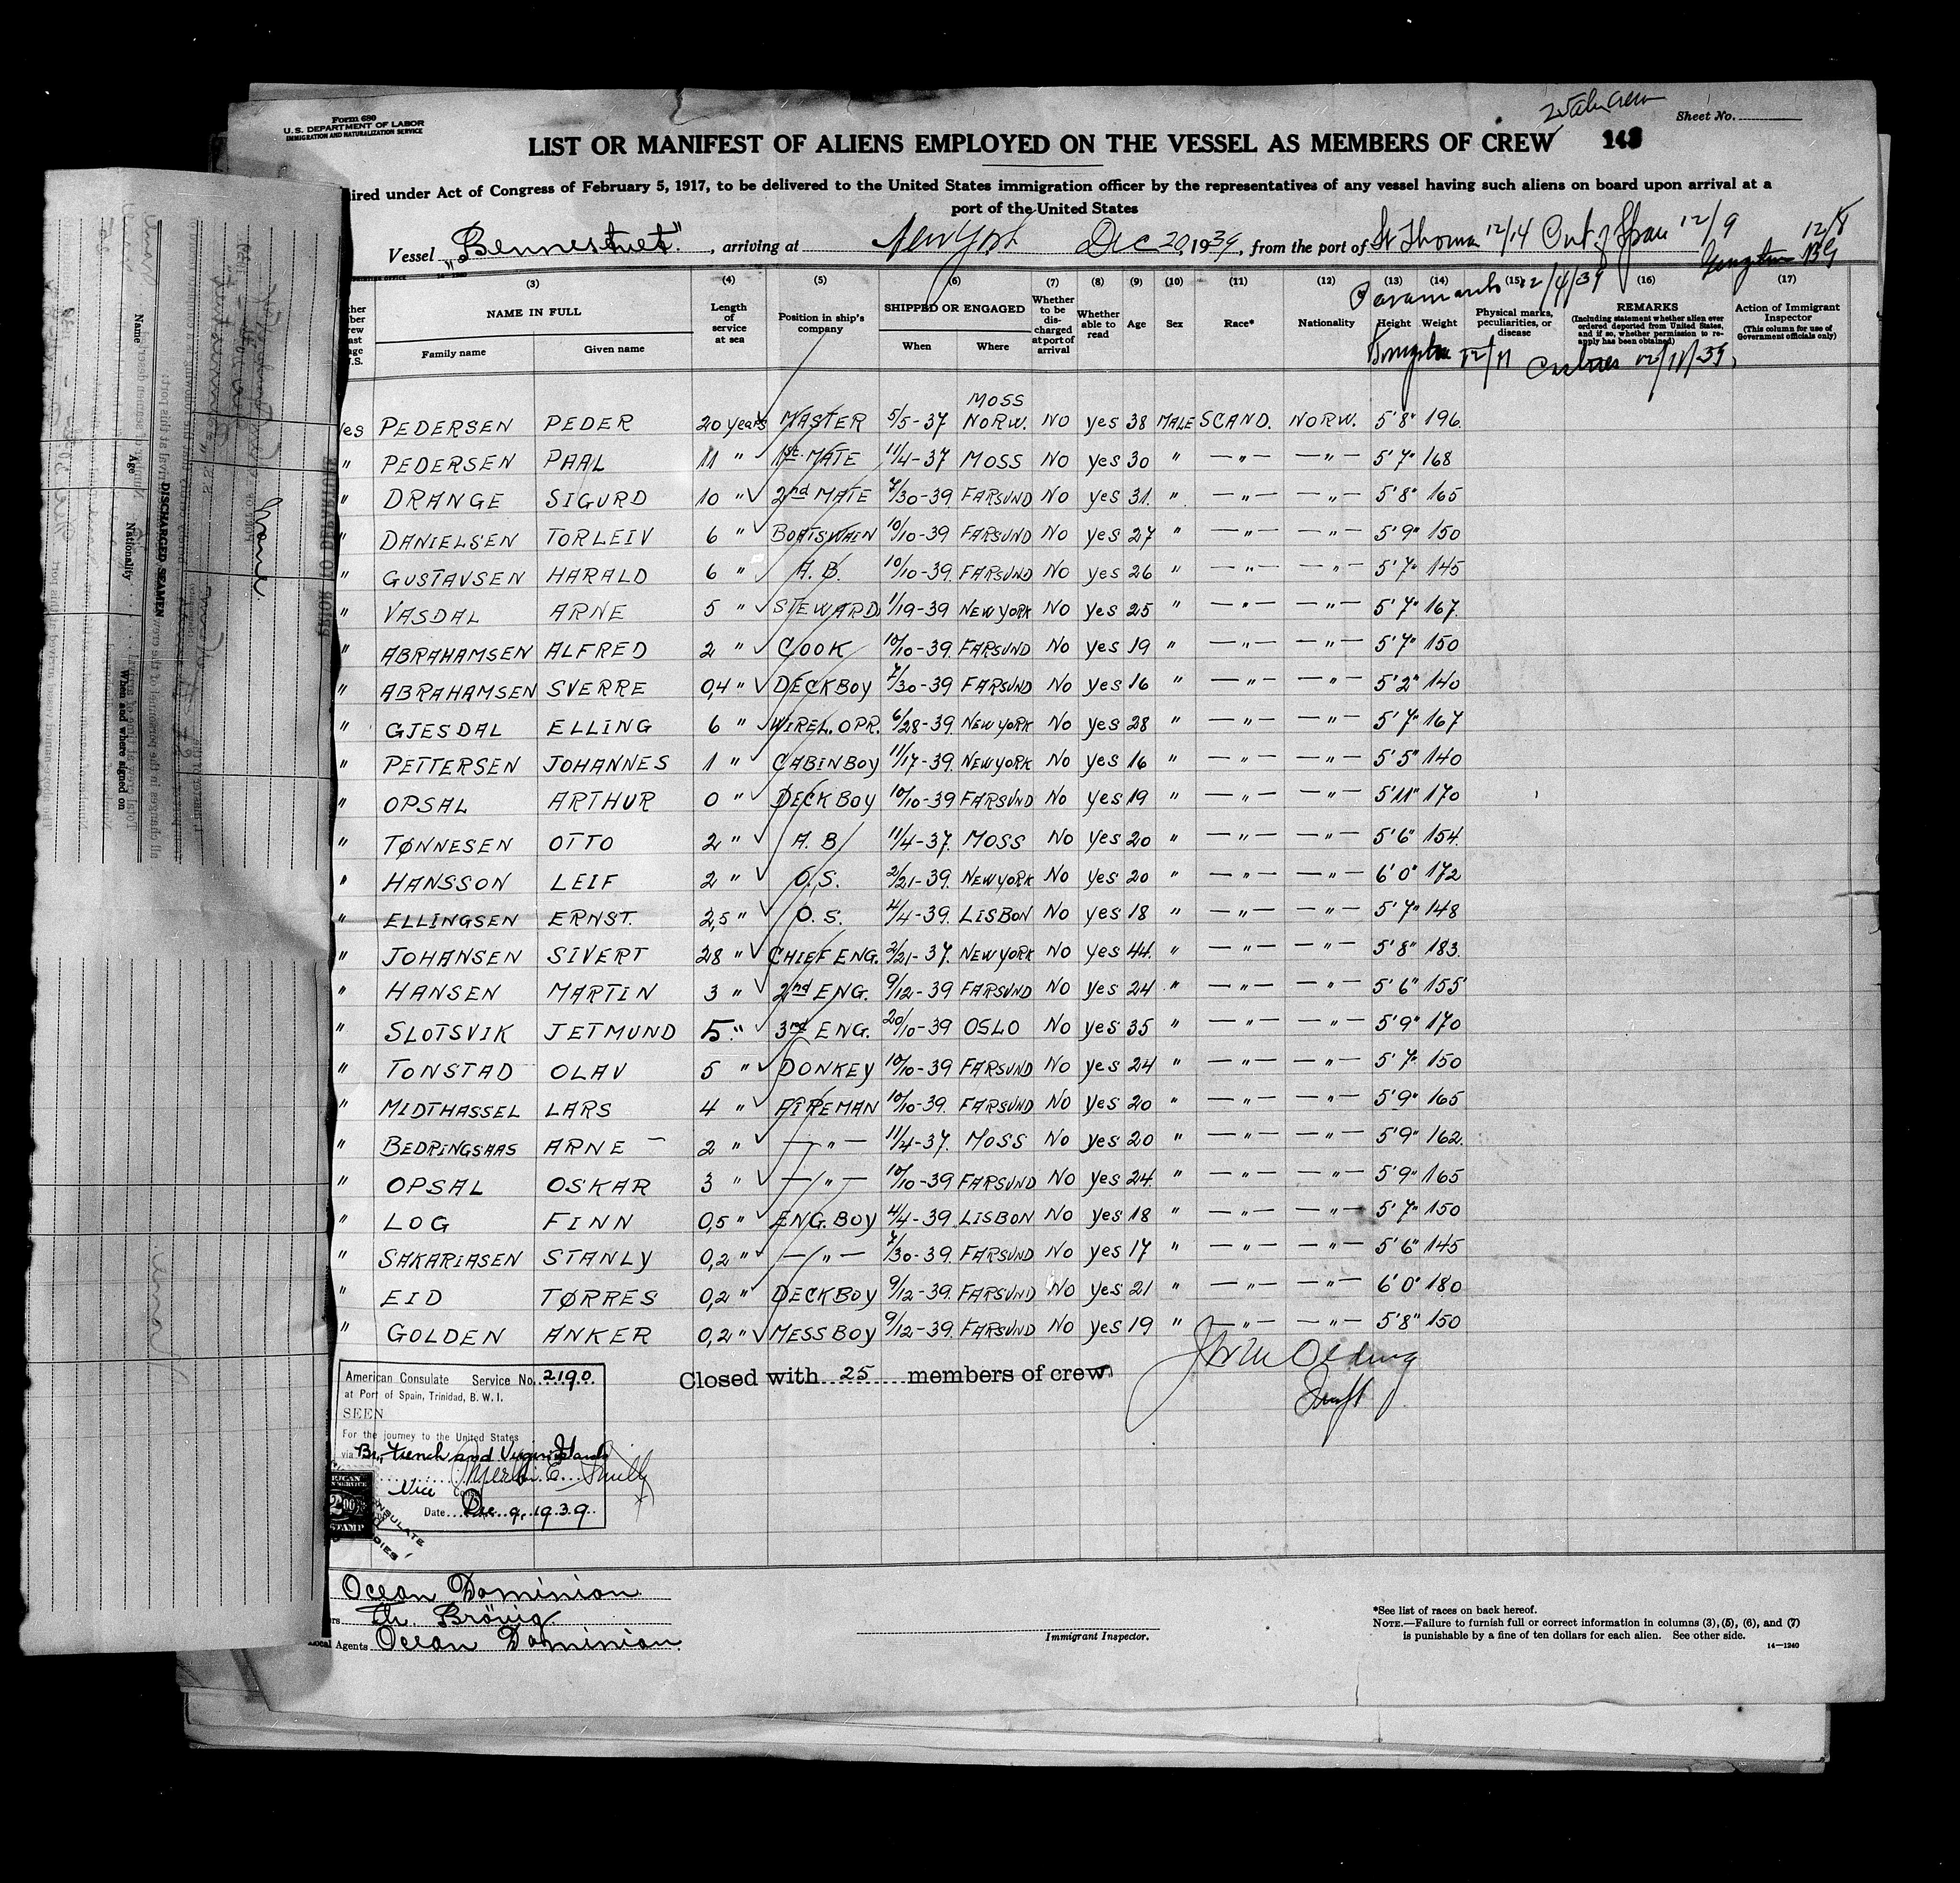 Form 680
U.S. DEPARTMENT OF LABOR
IMMIGRATION AND NATURALIZATION SERVICE
Sheet No.
LIST OR MANIFEST OF ALIENS EMPLOYED ON THE VESSEL AS MEMBERS OF CREW 148
ired under Act of Congress of February 5, 1917, to be delivered to the United States immigration officer by the representatives of any vessel having such aliens on board upon arrival at a
port of the United States
Vessel "Bennestvet", arriving at New York Dec 20, 1939, from the port of St Thomas 12/14 Port of Spain 12/9 12/8
Georgetown BG
Paramaribo 12/4/39
12/11 Castries 12/11/39
(3) (4) (5) (6) (7) (8) (9) (10) (11) (12) (13) (14) (15) (16) (17)
NAME IN FULL
Family name Given name
Length of service at sea
Position in ship's company
SHIPPED OR ENGAGED
When Where
Whether to be discharged at port of arrival
Whether able to read
Age Sex Race* Nationality Height Weight
Physical marks, peculiarities, or disease
REMARKS
(Including statement whether alien ever ordered deported from United States, and if so, whether permission to reapply has been obtained)
Action of Immigrant Inspector
(This column for use of Government officials only)
yes PEDERSEN PEDER 20 years MASTER 5/5-37 MOSS NORW. NO yes 38 MALE SCAND. NORW. 5'8" 196.
" PEDERSEN PAAL 11 " 1st. MATE 11/4-37 MOSS NO yes 30 " —"— —"— 5'7" 168
" DRANGE SIGURD 10 " ✓ 2nd MATE 7/30-39 FARSUND NO yes 31. " —"— —"— 5'8" 165
" DANIELSEN TORLEIV 6 " ✓ BOATSWAIN 10/10-39 FARSUND NO yes 27 " —"— —"— 5'9" 150
" GUSTAVSEN HARALD 6 " ✓ A.B. 10/10-39. FARSUND NO yes 26 " —"— —"— 5'7" 145
" VASDAL ARNE 5 " ✓ STEWARD 1/19-39 NEW YORK NO yes 25 " —"— —"— 5'7" 167.
" ABRAHAMSEN ALFRED 2 " ✓ COOK 10/10-39. FARSUND NO yes 19 " —"— —"— 5'7" 150
" ABRAHAMSEN SVERRE 0,4 " ✓ DECKBOY 7/30-39 FARSUND NO yes 16 " —"— —"— 5'2" 140
" GJESDAL ELLING 6 " ✓ WIREL. OPR. 6/28-39. NEW YORK NO yes 28 " —"— —"— 5'7" 167
" PETTERSEN JOHANNES 1 " ✓ CABINBOY 11/17-39. NEW YORK NO yes 16 " —"— —"— 5'5" 140
" OPSAL ARTHUR 0 " ✓ DECKBOY 10/10-39 FARSUND NO yes 19 " —"— —"— 5'11" 170
" TØNNESEN OTTO 2 " ✓ A.B 11/4-37. MOSS NO yes 20 " —"— —"— 5'6" 154.
" HANSSON LEIF 2 " ✓ O.S. 2/21-39. NEW YORK NO yes 20 " —"— —"— 6'0" 172
" ELLINGSEN ERNST. 2,5 " ✓ O.S. 4/4-39. LISBON NO yes 18 " —"— —"— 5'7" 148
" JOHANSEN SIVERT 28 " ✓ CHIEF ENG. 2/21-37. NEW YORK NO yes 44. " —"— —"— 5'8" 183.
" HANSEN MARTIN 3 " ✓ 2nd ENG. 9/12-39 FARSUND NO yes 24 " —"— —"— 5'6" 155
" SLOTSVIK JETMUND 5. " ✓ 3rd ENG. 20/10-39 OSLO NO yes 35 " —"— —"— 5'9" 170
" TONSTAD OLAV 5 " ✓ DONKEY 10/10-39 FARSUND NO yes 24 " —"— —"— 5'7" 150
" MIDTHASSEL LARS 4 " ✓ FIREMAN 10/10-39. FARSUND NO yes 20 " —"— —"— 5'9" 165
" BEDRINGSAAS ARNE 2 " ✓ —"— 11/4-37. MOSS NO yes 20 " —"— —"— 5'9" 162.
" OPSAL OSKAR 3 " ✓ —"— 10/10-39 FARSUND NO yes 24. " —"— —"— 5'9" 165
" LOG FINN 0,5 " ✓ ENG. BOY 4/4-39. LISBON NO yes 18 " —"— —"— 5'7" 150
" SAKARIASEN STANLY 0,2 " ✓ —"— 7/30-39. FARSUND NO yes 17 " —"— —"— 5'6" 145
" EID TØRRES 0,2 " ✓ DECKBOY 9/12-39. FARSUND NO yes 21 " —"— —"— 6'0" 180
" GOLDEN ANKER 0,2 " ✓ MESSBOY 9/12-39. FARSUND NO yes 19 " —"— —"— 5'8" 150
Closed with 25 members of crew
American Consulate Service No. 2190.
at Port of Spain, Trinidad, B. W. I.
SEEN
For the journey to the United States
via Br., French and Virgin Islands
Vice Consul
Date Dec. 9, 1939.
Ocean Dominion
Th. Brövig
Local Agents Ocean Dominion
Immigrant Inspector.
*See list of races on back hereof.
NOTE.—Failure to furnish full or correct information in columns (3), (5), (6), and (7)
is punishable by a fine of ten dollars for each alien. See other side.
14—1240
DISCHARGED SEAMEN
Name
Age
Nationality
When and where signed on